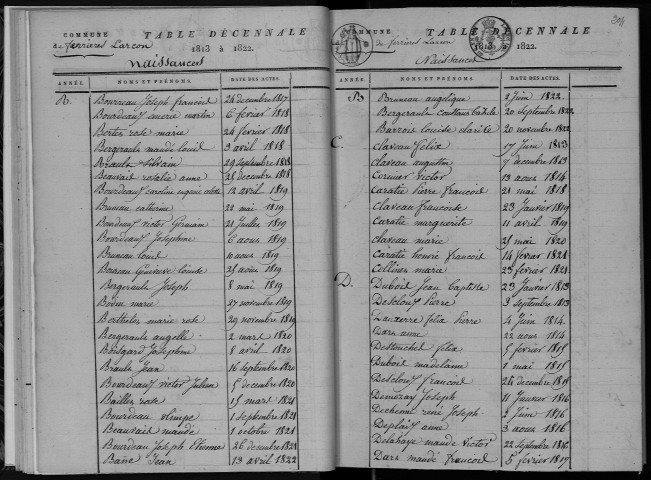 COMMUNE
de ferrieres Larcon
TABLE DÉCENNALE
1813 à 1822.
Naissances
ANNÉE. NOMS ET PRÉNOMS. DATE DES ACTES.
B. Bourreau Joseph francois 24 decembre 1817
Bourdeaux sincere martin 6 fevrier 1818
Bertes rose marie 24 fevrier 1818
Bergerault mandé Louis 3 avril 1818
Brault silvain 29 septembre 1818
Beauvais rosalie anne 28 decembre 1818
Bourdeaux caroline eugenie 12 avril 1819
Bruneau catherine 22 mai 1819
Bourdeaux victor Germain 21 Juillet 1819
Bourdeaux Josephine 6 aout 1819
Bruneau Louis 10 aout 1819
Bareau Genevieve Louise 25 aout 1819
Bergerault Joseph 8 mai 1819
Bodin marie 27 novembre 1819
Berthelot marie rose 29 novembre 1819
Bergerault angelle 2 mars 1820
Boisgard Josephine 8 avril 1820
Brault Jean 16 septembre 1820
Bourdeaux victor Julien 5 decembre 1820
Bailler rose 15 mars 1821
Bourdeau olimpe 1 septembre 1821
Beauvais mandé 1 octobre 1821
Bourdeau Joseph Etienne 26 decembre 1821
Basse Jean 13 avril 1822
COMMUNE
de ferrieres Larcon
TABLE DÉCENNALE
1813 à 1822.
Naissances
ANNÉE. NOMS ET PRÉNOMS. DATE DES ACTES.
B. Bruneau angelique 2 Juin 1822
Bergerault constant 20 septembre 1822
Barrois Louise clarisse 20 novembre 1822
C. Claveau felix 17 Juin 1813
Claveau augustin 7 decembre 1813
Cormier victor 13 aout 1814
Caratie pierre francois 21 mai 1818
Claveau francoise 23 Janvier 1819
Caratie marguerite 11 avril 1819
Claveau marie 25 mai 1820
Caratie honoré francois 14 fevrier 1821
Collinet marie 23 fevrier 1821
D. Dubois Jean Baptiste 23 Janvier 1813
Descloux pierre 3 septembre 1813
felix pierre 4 Juin 1814
Dars anne 22 aout 1814
Destouchet felix 5 fevrier 1815
Dubois madelaine 1 mai 1815
Descloux francois 26 decembre 1815
Demezay Joseph 11 Janvier 1816
Dechenne rené Joseph 3 Juin 1816
Deplaix anne 3 aout 1816
Delahaye mandé victor 22 septembre 1816
Dars mandé francois 5 fevrier 1817